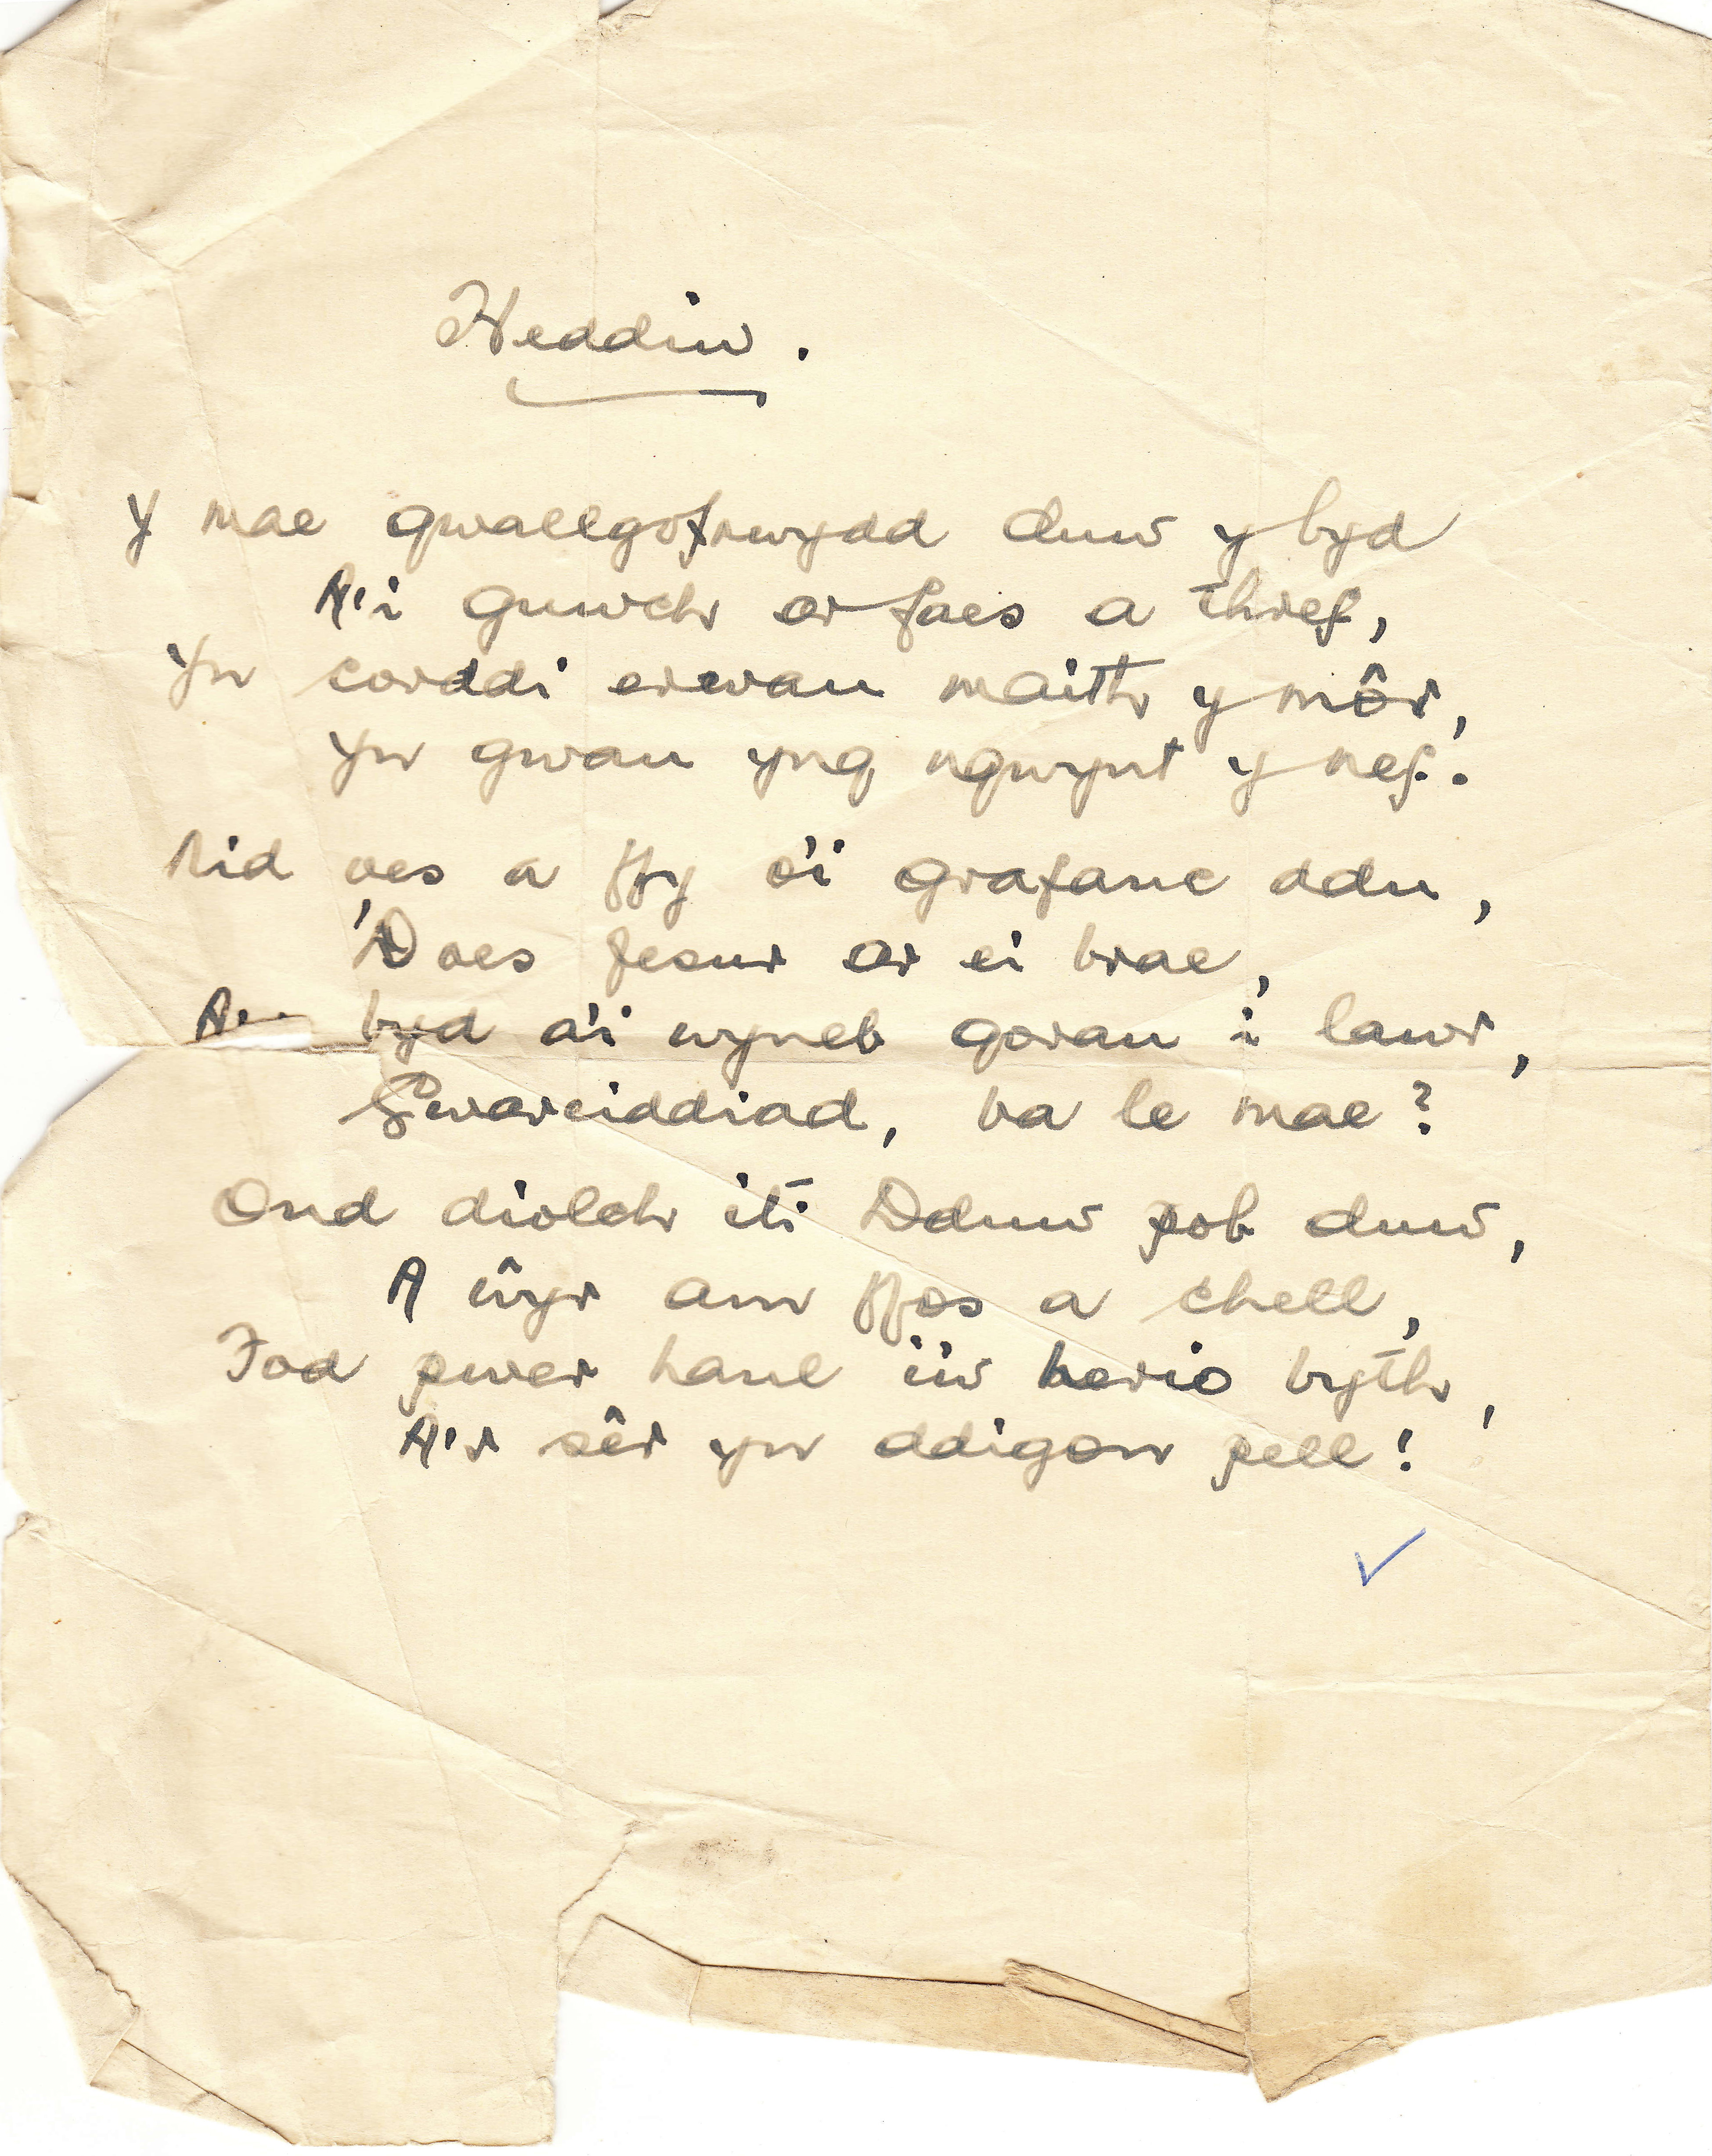 Heddiw.
Y mae gwallgofrwydd duw y byd
A'i guwch ar faes a thref,
Yn corddi erwau maith y môr,
Yn gwau yng ngwynt y nef.
Nid oes a ffy o'i grafanc ddu,
'Does fesur ar ei brae,
byd a'i wyneb gorau i lawr,
Gwareiddiad, ba le mae?
Ond diolch iti Dduw pob duw,
A ŵyr am ffos a chell,
Fod pwer haul i'w herio byth,
A'r sêr yn ddigon pell!